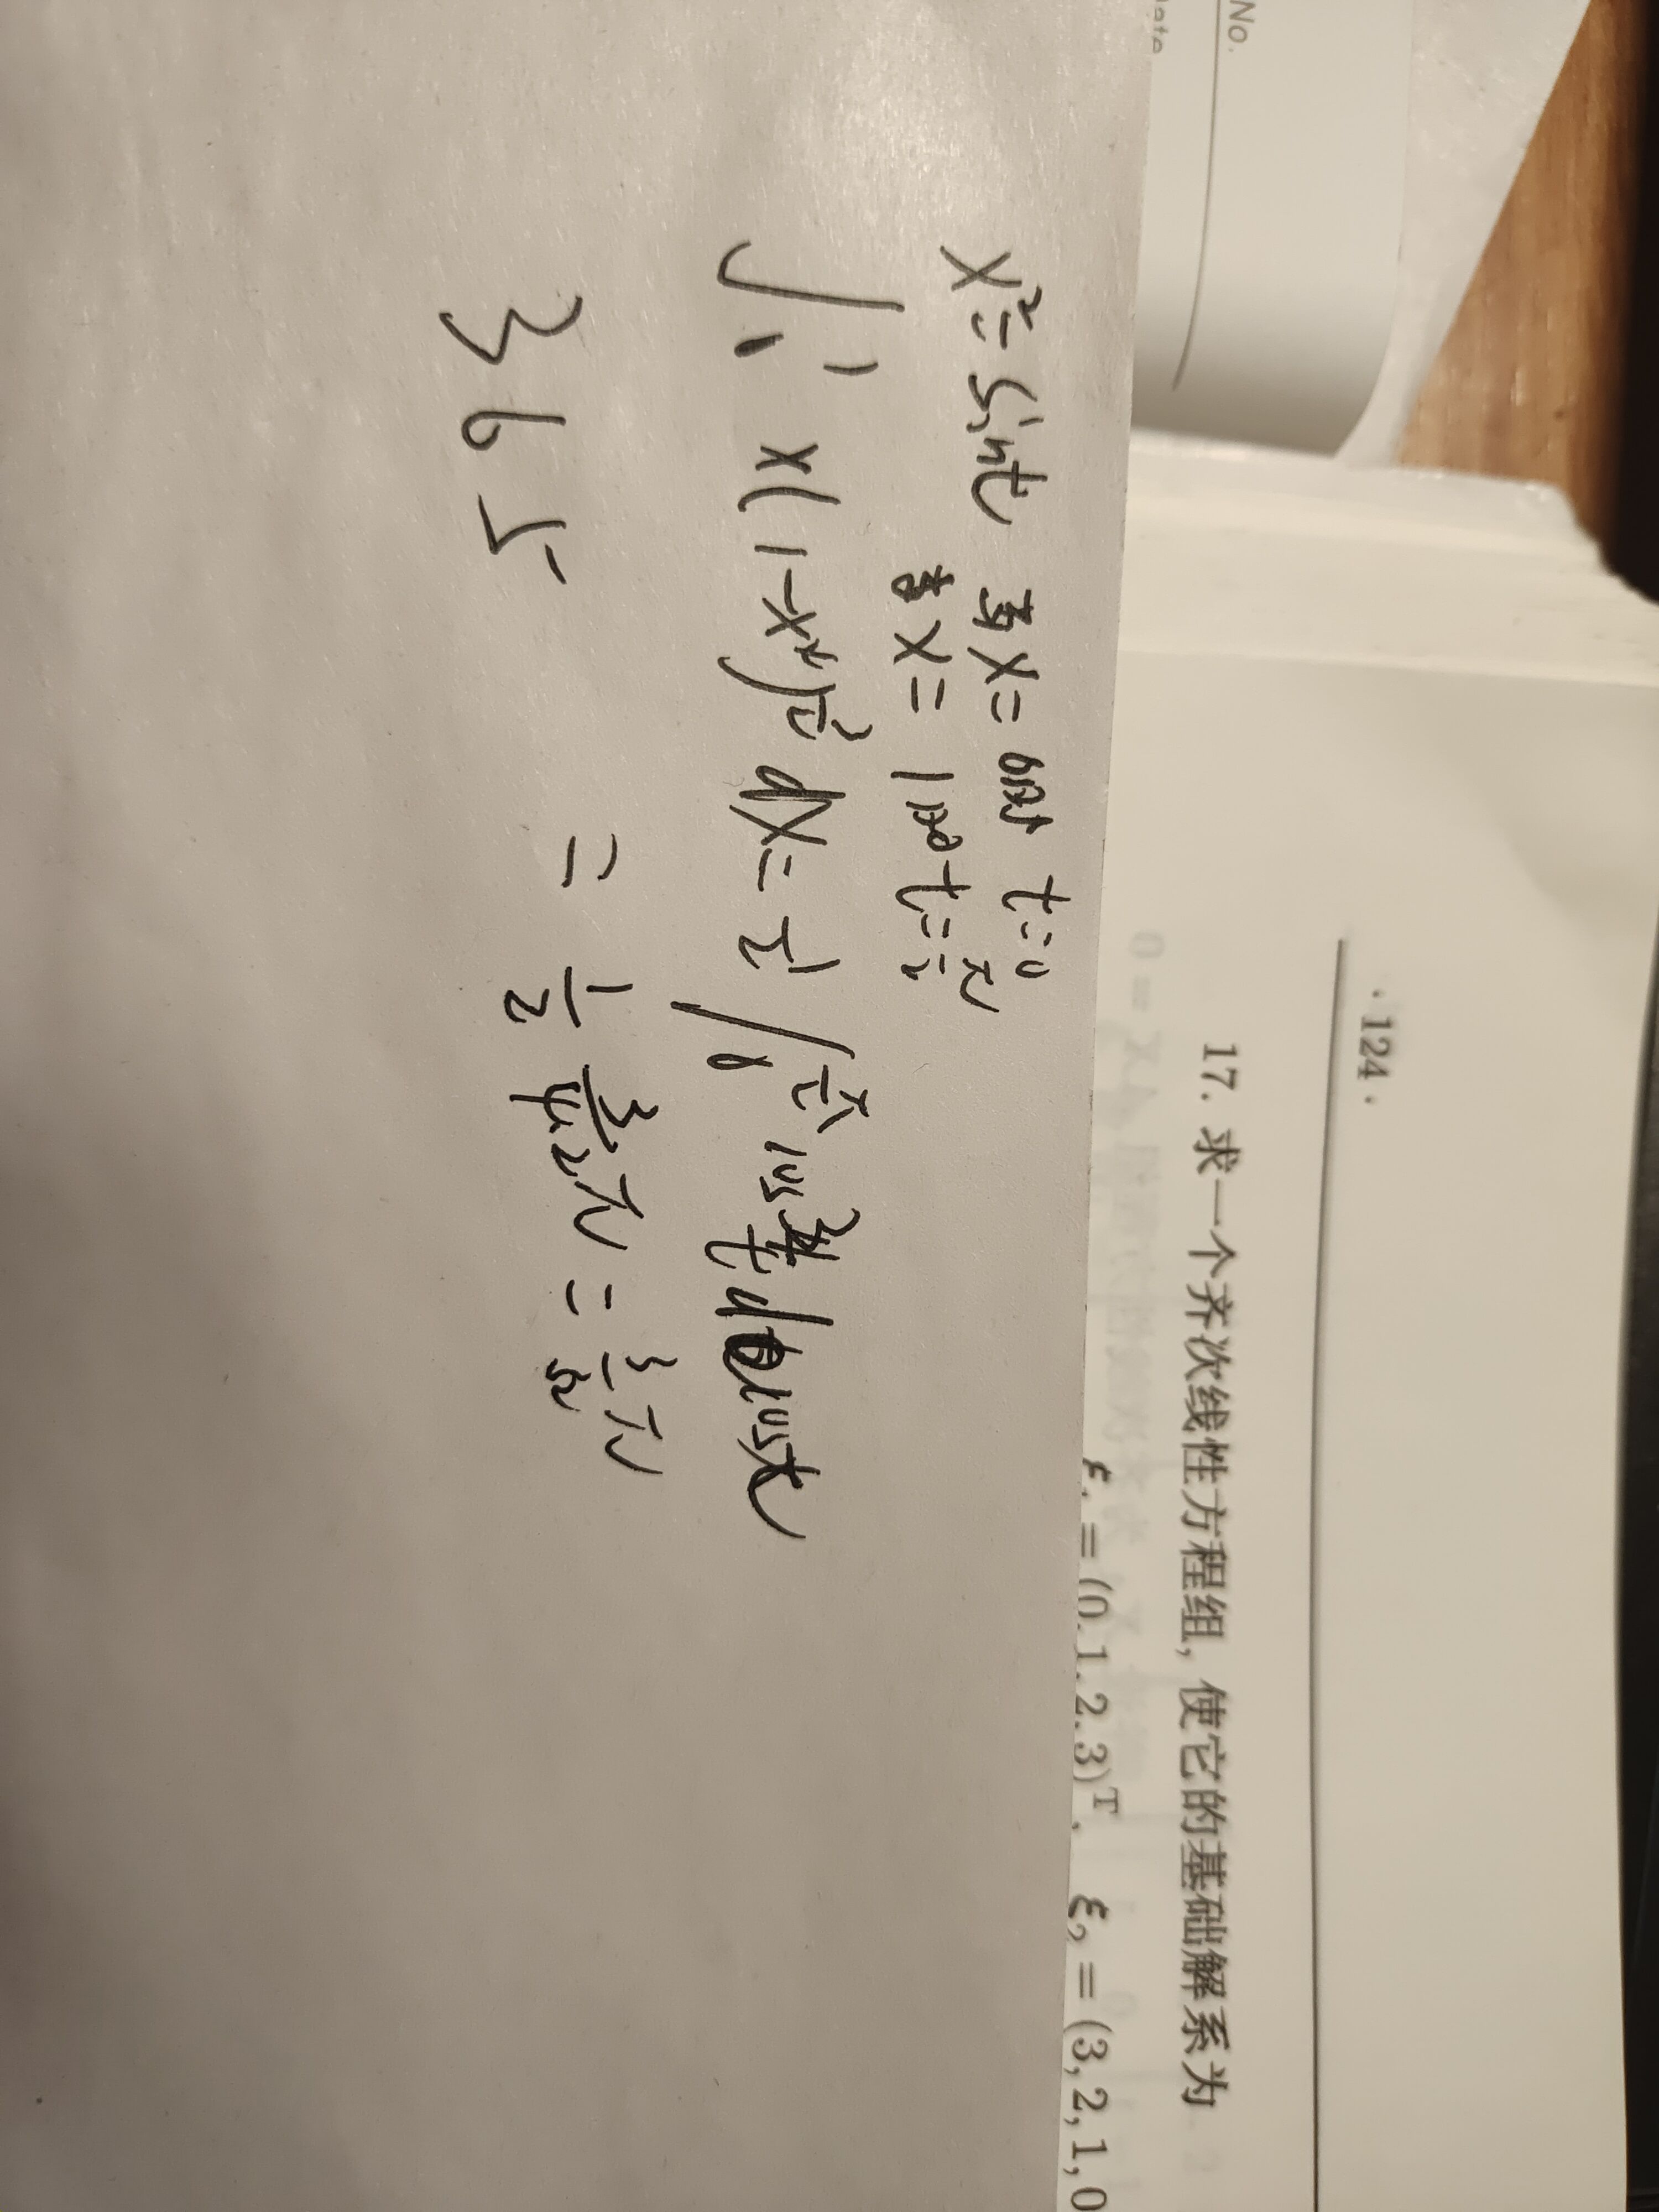 No.
· 124 ·
17. 求一个齐次线性方程组, 使它的基础解系为
ξ₁ = (0,1,2,3)ᵀ, ξ₂ = (3,2,1,0
x²=sint 当x=0时 t=0
当x=1时 t=π/2
∫₀¹ x(1-x⁴)^(3/2) dx = 1/2 ∫₀^(π/2) cos³t dt cost
= 1/2 3/4·2 π = 3/32 π
365